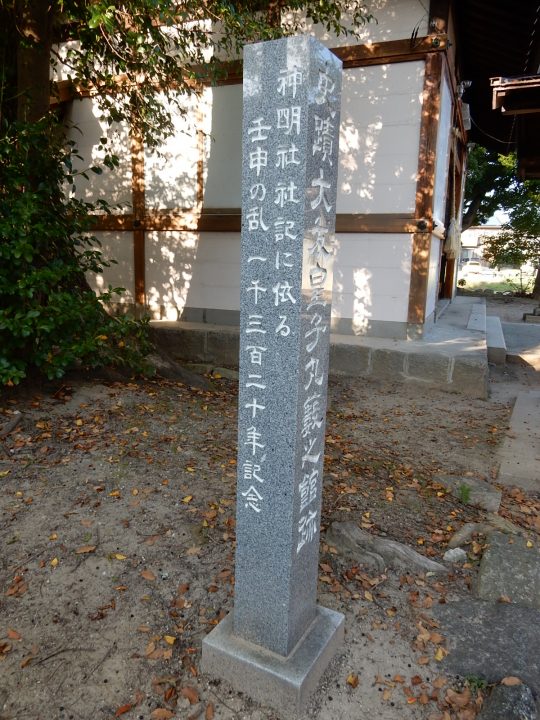 史蹟大友皇子丸藪之館跡
神明社社記に依る
壬申の乱一千三百二十年記念